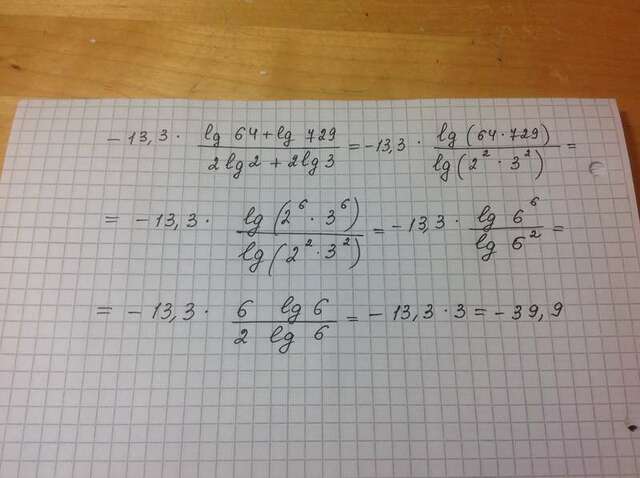 - 13,3 · (lg 64 + lg 729)/(2 lg 2 + 2 lg 3) = -13,3 · lg (64 · 729)/lg (2² · 3²) =
= - 13,3 · lg (2⁶ · 3⁶)/lg (2² · 3²) = - 13,3 · lg 6⁶/lg 6² =
= - 13,3 · 6 lg 6/2 lg 6 = - 13,3 · 3 = - 39,9